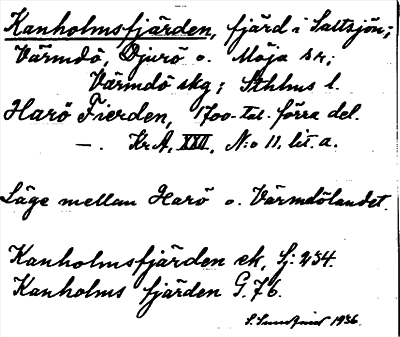 Kanholmsfjärden, fjärd i Saltsjön;
Värmdö, Djurö o. Möja sr;
Värmdö skg; Sthlms l.
Harö Fierden, 1700-tal. förra del.
—. KrA, XXII, N:o 11. lit. a.
Läge mellan Harö o. Värmdölandet.
Kanholmsfjärden ek, Sj: 234.
Kanholms fjärden G. 76.
S. 1936.